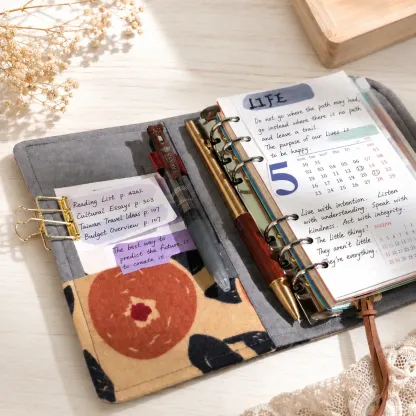 Reading List p. 4262
Cultural Essays p. 303
Taiwan Travel Ideas p. 147
Budget Overview p. 197
The best way to
predict the future is
to create it.
LIFE
Do not go where the path may lead,
go instead where there is no path
and leave a trail.
The purpose of our lives is
to be happy
5
Live with intention. Listen
with understanding. Speak with
kindness. Act with integrity.
The little things?
They aren't little
They're everything